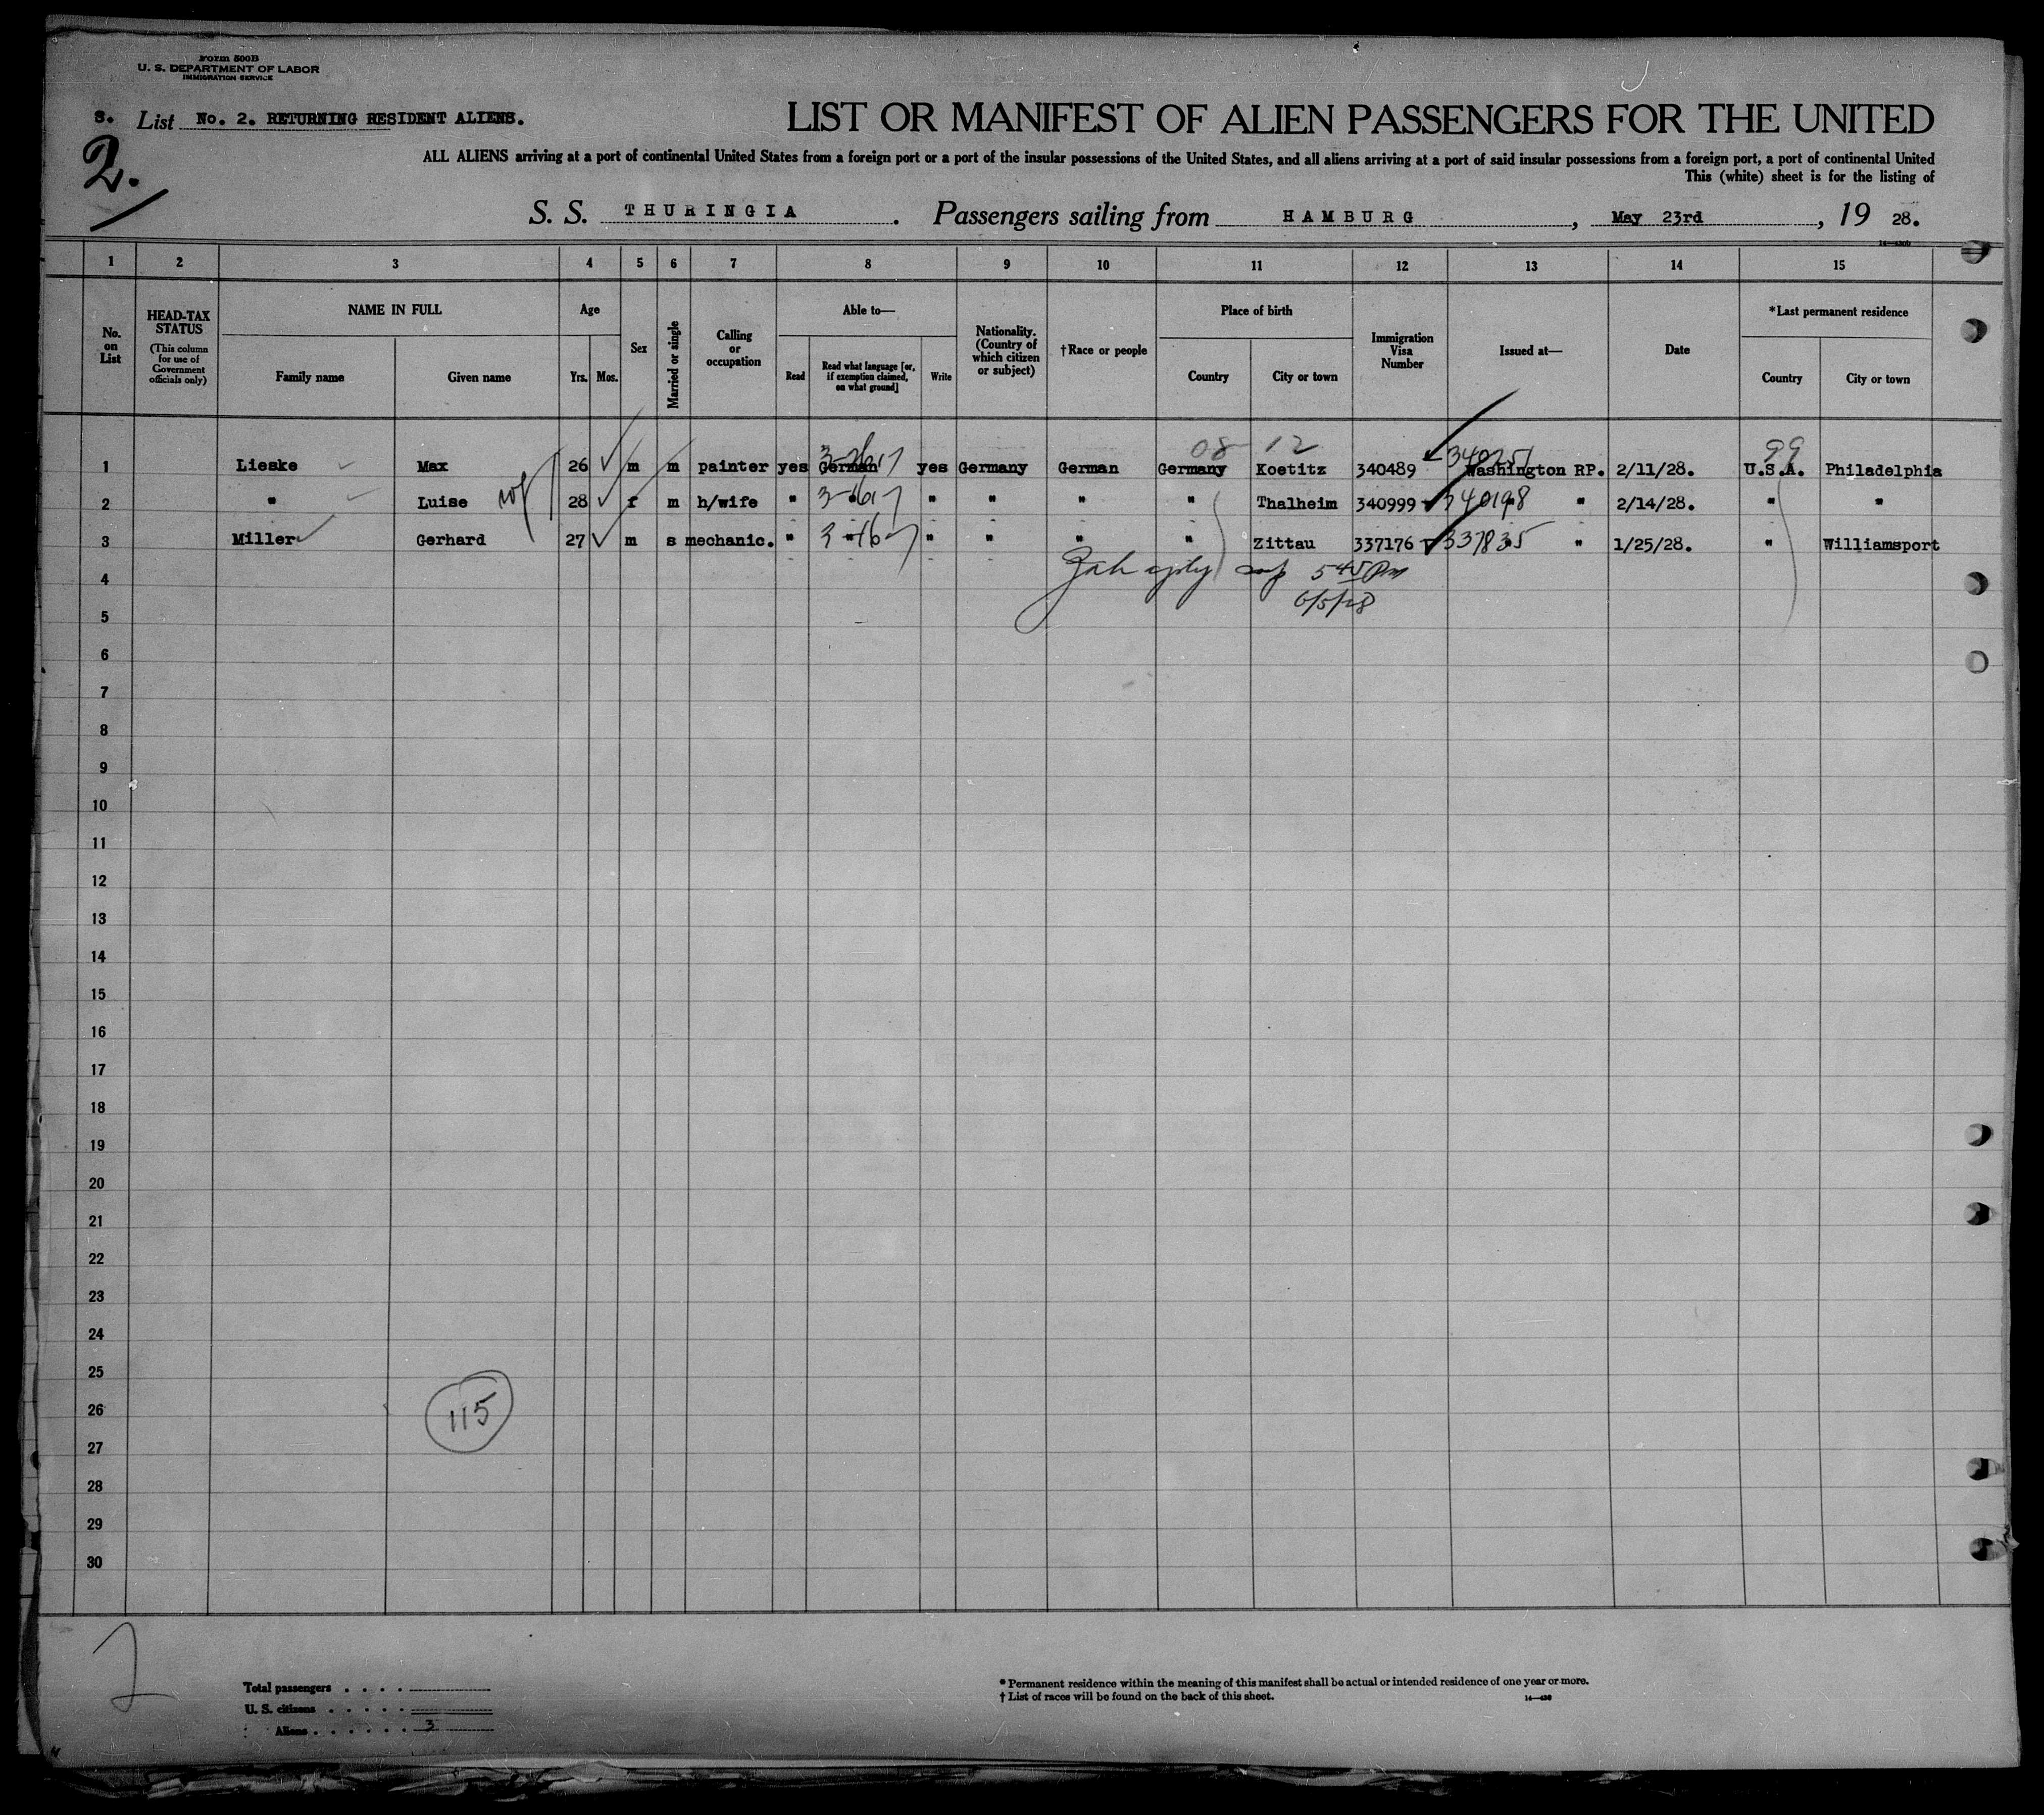 Form 500B
U. S. DEPARTMENT OF LABOR
IMMIGRATION SERVICE
S. List No. 2. RETURNING RESIDENT ALIENS.
2.
LIST OR MANIFEST OF ALIEN PASSENGERS FOR THE UNITED
ALL ALIENS arriving at a port of continental United States from a foreign port or a port of the insular possessions of the United States, and all aliens arriving at a port of said insular possessions from a foreign port, a port of continental United
This (white) sheet is for the listing of
S. S. THURINGIA. Passengers sailing from HAMBURG, May 23rd, 19 28.
1 2 3 4 5 6 7 8 9 10 11 12 13 14 15
No. on List
HEAD-TAX STATUS (This column for use of Government officials only)
NAME IN FULL
Family name Given name
Age
Yrs. Mos.
Sex
Married or single
Calling or occupation
Able to—
Read Read what language [or, if exemption claimed, on what ground] Write
Nationality. (Country of which citizen or subject)
†Race or people
Place of birth
Country City or town
Immigration Visa Number
Issued at—
Date
*Last permanent residence
Country City or town
08 12 99
1 Lieske Max 26 m m painter yes German yes Germany German Germany Koetitz 340489 Washington RP. 2/11/28. U.S.A. Philadelphia
2 " Luise 28 f m h/wife " " " " " " Thalheim 340999 340198 " 2/14/28. " "
3 Miller Gerhard 27 m s mechanic. " " " " " " Zittau 337176 337835 " 1/25/28. " Williamsport
4 5 45 Pm
5 6/5/28
6
7
8
9
10
11
12
13
14
15
16
17
18
19
20
21
22
23
24
25
26 115
27
28
29
30
Total passengers . . . .
U. S. citizens . . . . .
Aliens . . . . . . 3
* Permanent residence within the meaning of this manifest shall be actual or intended residence of one year or more.
† List of races will be found on the back of this sheet.